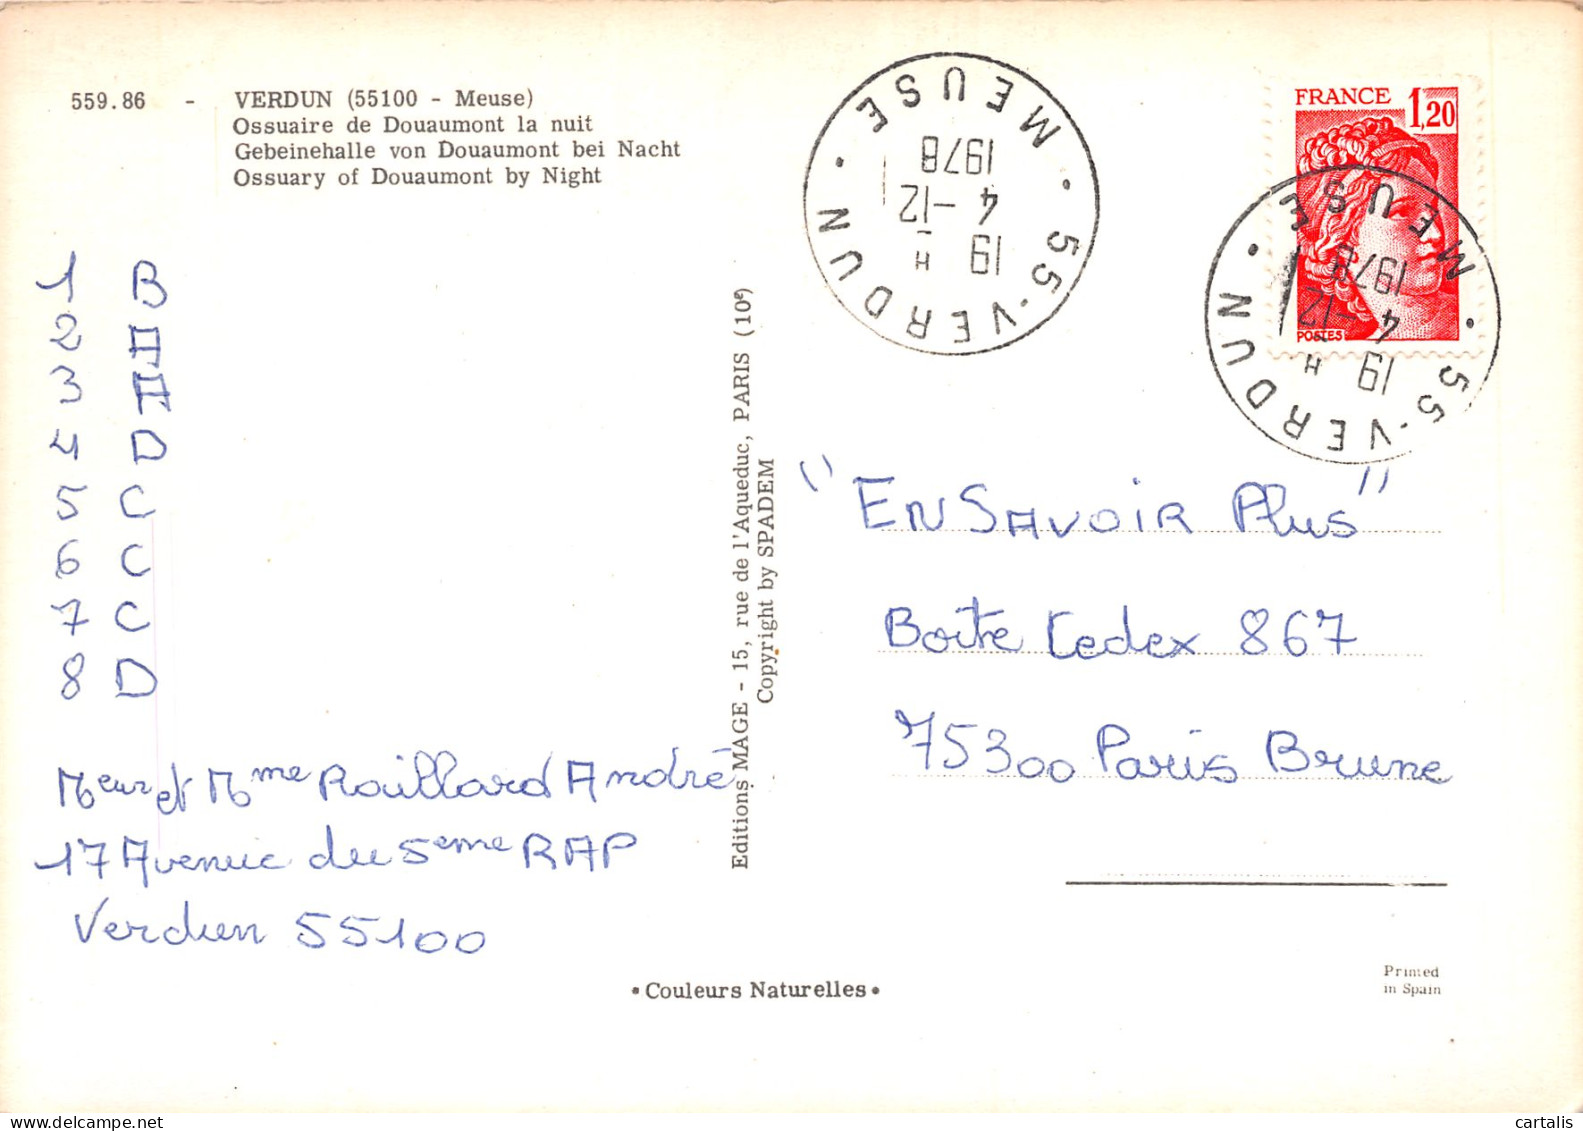 559.86 - VERDUN (55100 - Meuse)
Ossuaire de Douaumont la nuit
Gebeinehalle von Douaumont bei Nacht
Ossuary of Douaumont by Night
1 B
2 A
3 A
4 D
5 C
6 C
7 C
8 D
Meur et Mme Raillard André
17 Avenue du 5eme RAP
Verdun 55100
Editions MAGE - 15, rue de l'Aqueduc, PARIS (10e)
Copyright by SPADEM
55-VERDUN • MEUSE •
19 H
4-12
1978
FRANCE 1,20
POSTES
55-VERDUN • MEUSE •
19 H
4-12
1978
"En Savoir Plus"
Boite Cedex 867
75300 Paris Brune
• Couleurs Naturelles •
Printed
in Spain
cartalis